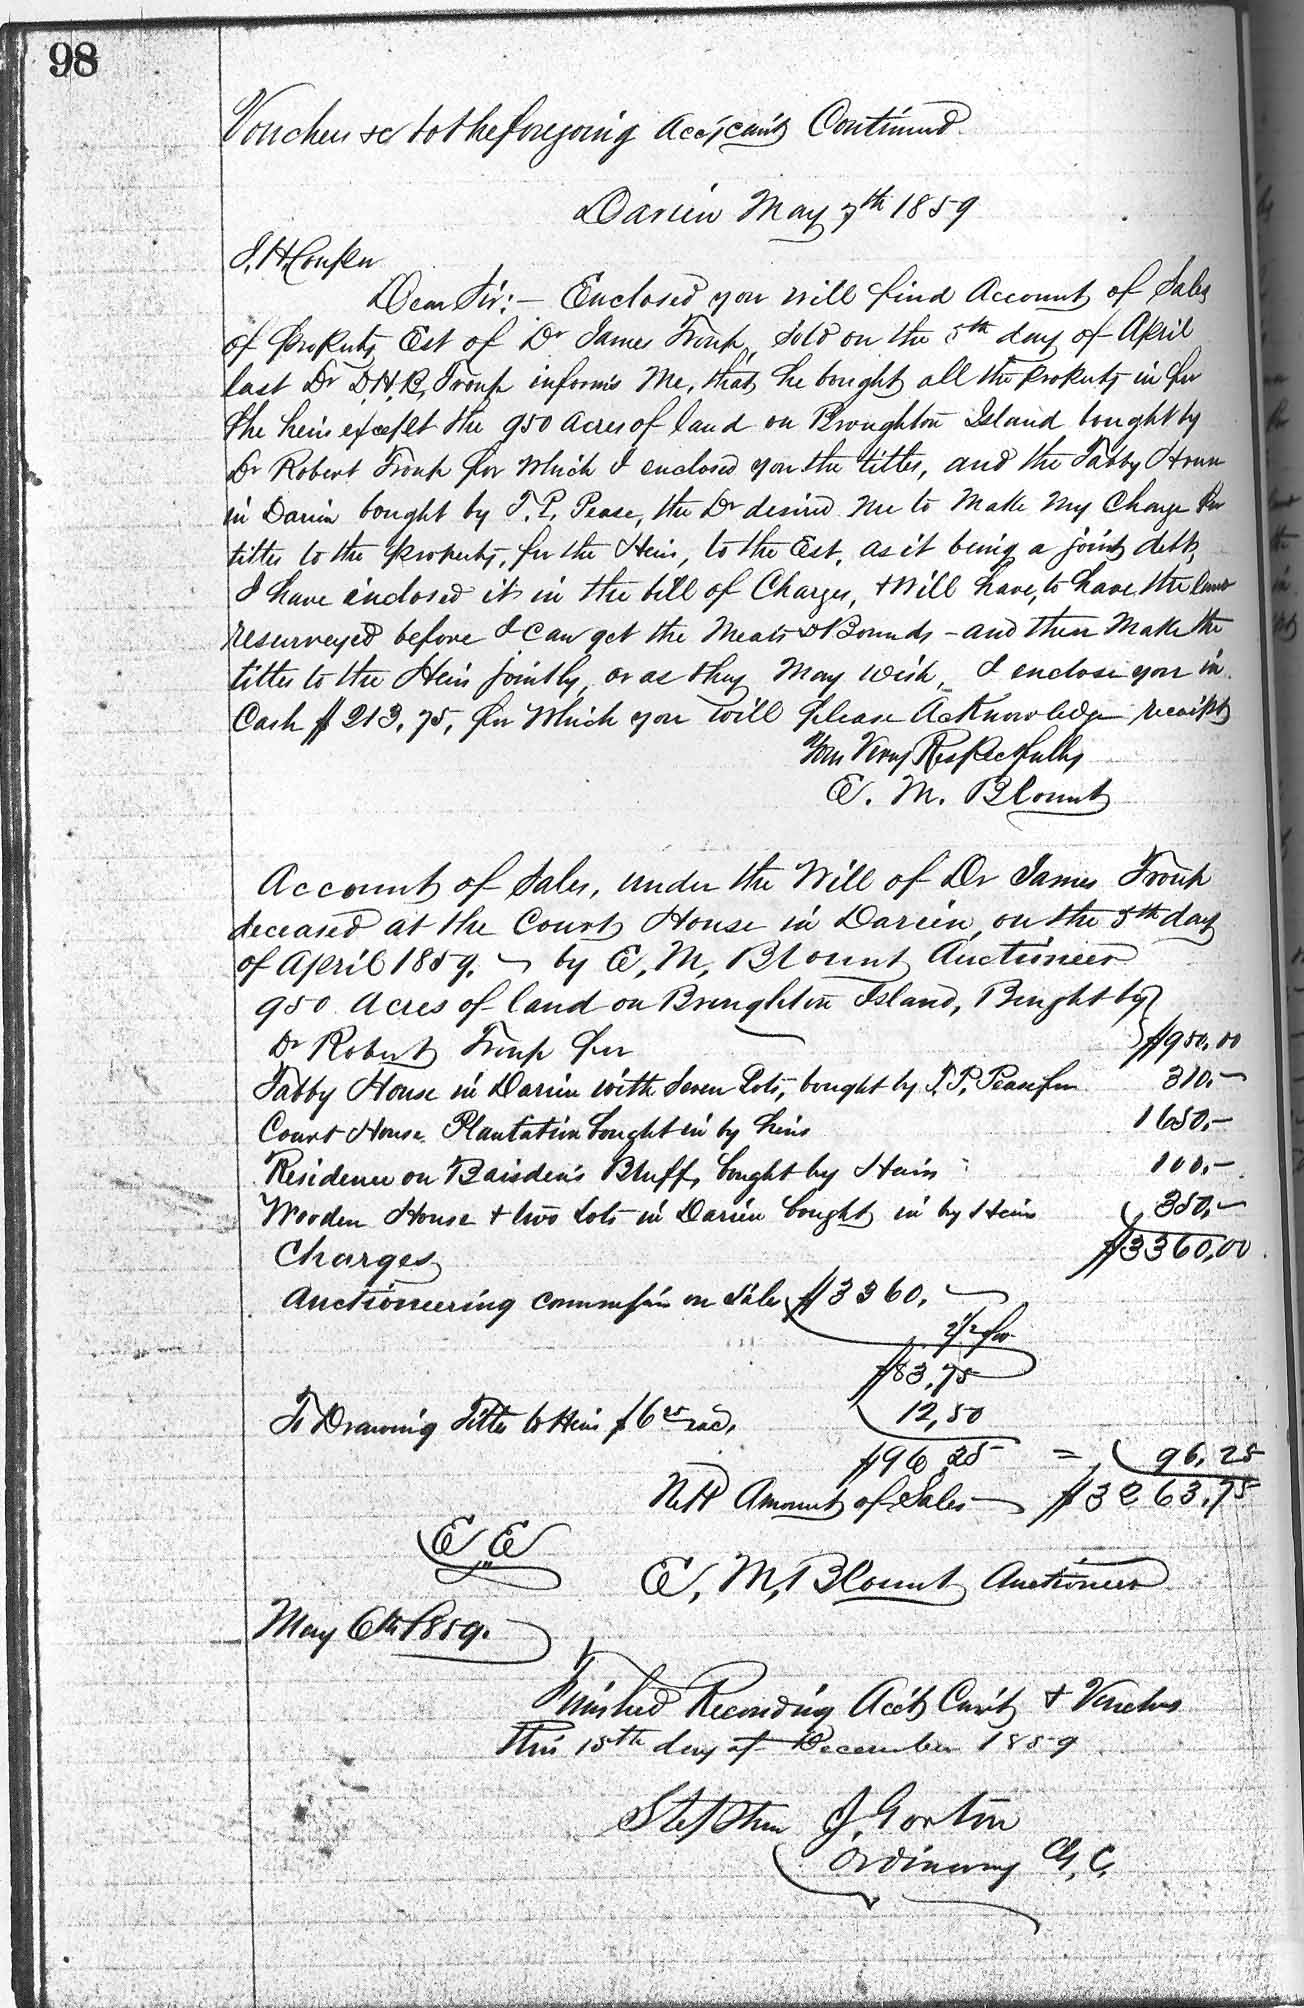 98
Vouchers &c to the foregoing Acc't Curr't Continued
Darien May 7th 1859
J. H. Couper
Dear Sir:— Enclosed you will find Account of Sales
of property Est of Dr James Troup, sold on the 5th day of April
last Dr D.H.B. Troup informs me, that he bought all the property in for
the heirs except the 950 acres of land on Broughton Island bought by
Dr Robert Troup for which I enclosed you the titles, and the Tabby House
in Darien bought by T. P. Pease, the Dr desired me to make my charge for
titles to the property, for the Heirs, to the Est. as it being a joint debt,
I have inclosed it in the bill of Charges, & will have, to have the land
resurveyed before I can get the Meats & Bounds – and then make the
titles to the Heirs jointly, or as they may wish, I enclose you in
Cash $213.75, for which you will please acknowledge receipt
Yours Very Respectfully
E. M. Blount
Account of Sales, under the Will of Dr James Troup
deceased at the Court House in Darien, on the 5th day
of April 1859. by E. M. Blount Auctioneer
950 acres of land on Broughton Island, Bought by
Dr Robert Troup for $950.00
Tabby House in Darien with Seven Lots, bought by T. P. Pease for 310.—
Court House Plantation bought in by heirs 1650.—
Residence on Baisden's Bluff, bought by Heirs 100.—
Wooden House & two Lots in Darien bought in by Heirs 350.—
Charges $3360.00
Auctioneering commission on Sales $3360.
2½ pr
$83.75
To Drawing Titles to Heirs $6 25 each, 12,50
$96.25 = 96.25
Nett Amount of Sales $3263.75
E E
E. M. Blount Auctioneer
May 6th 1859.
Finished Recording Acct Curt & Vouchers
this 15th day of December 1859
Stephen J. Gorton
Ordinary G. C.